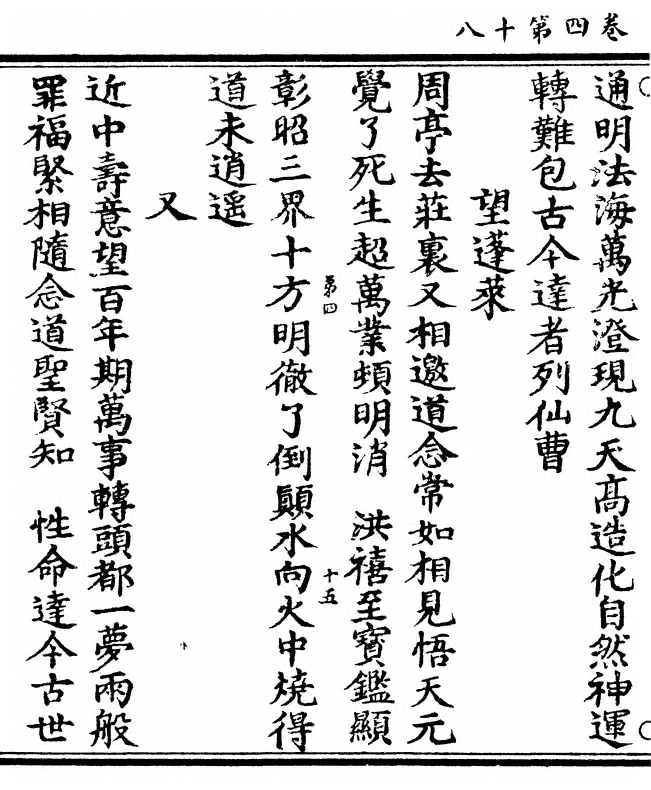 卷四第十八
通明法海萬光澄現九天髙造化自然神運
轉難包古今達者列仙曹
望蓬萊
周亭去莊裏又相邀道念常如相見悟天元
覺了死生超萬業頻明消　洪禧至寶鑑顯
第四
十五
彰昭三界十方明徹了倒顛水向火中燒得
道未逍遥
又
近中壽意望百年期萬事轉頭都一夢兩般
罪福緊相隨念道聖賢知　性命達今古世